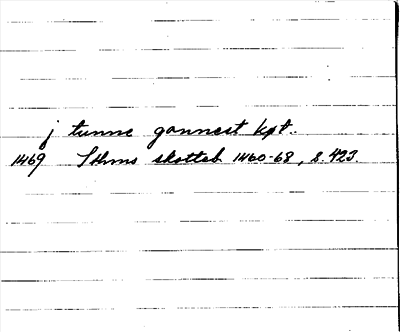 j tunne gonnest køt..
1469 Sthms skotteb 1460-68, s. 423.